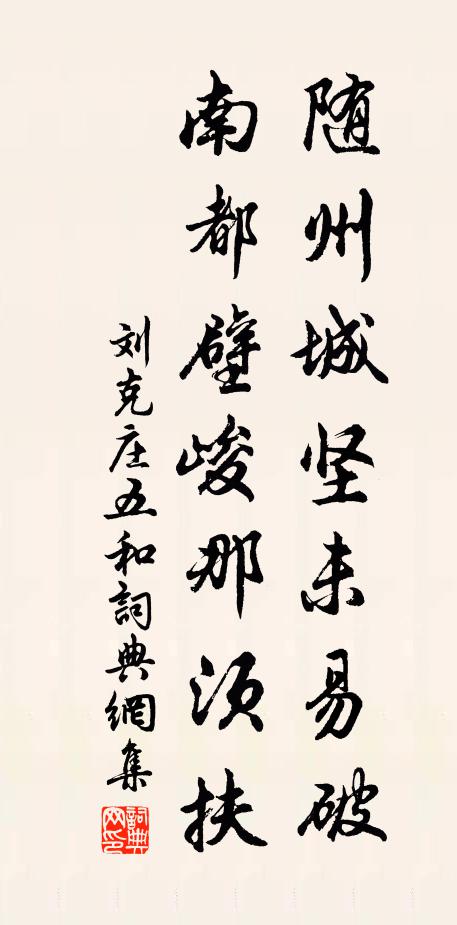 随州城坚未易破
南都壁峻那须扶
刘克庄五和詞典網集
詞典网印